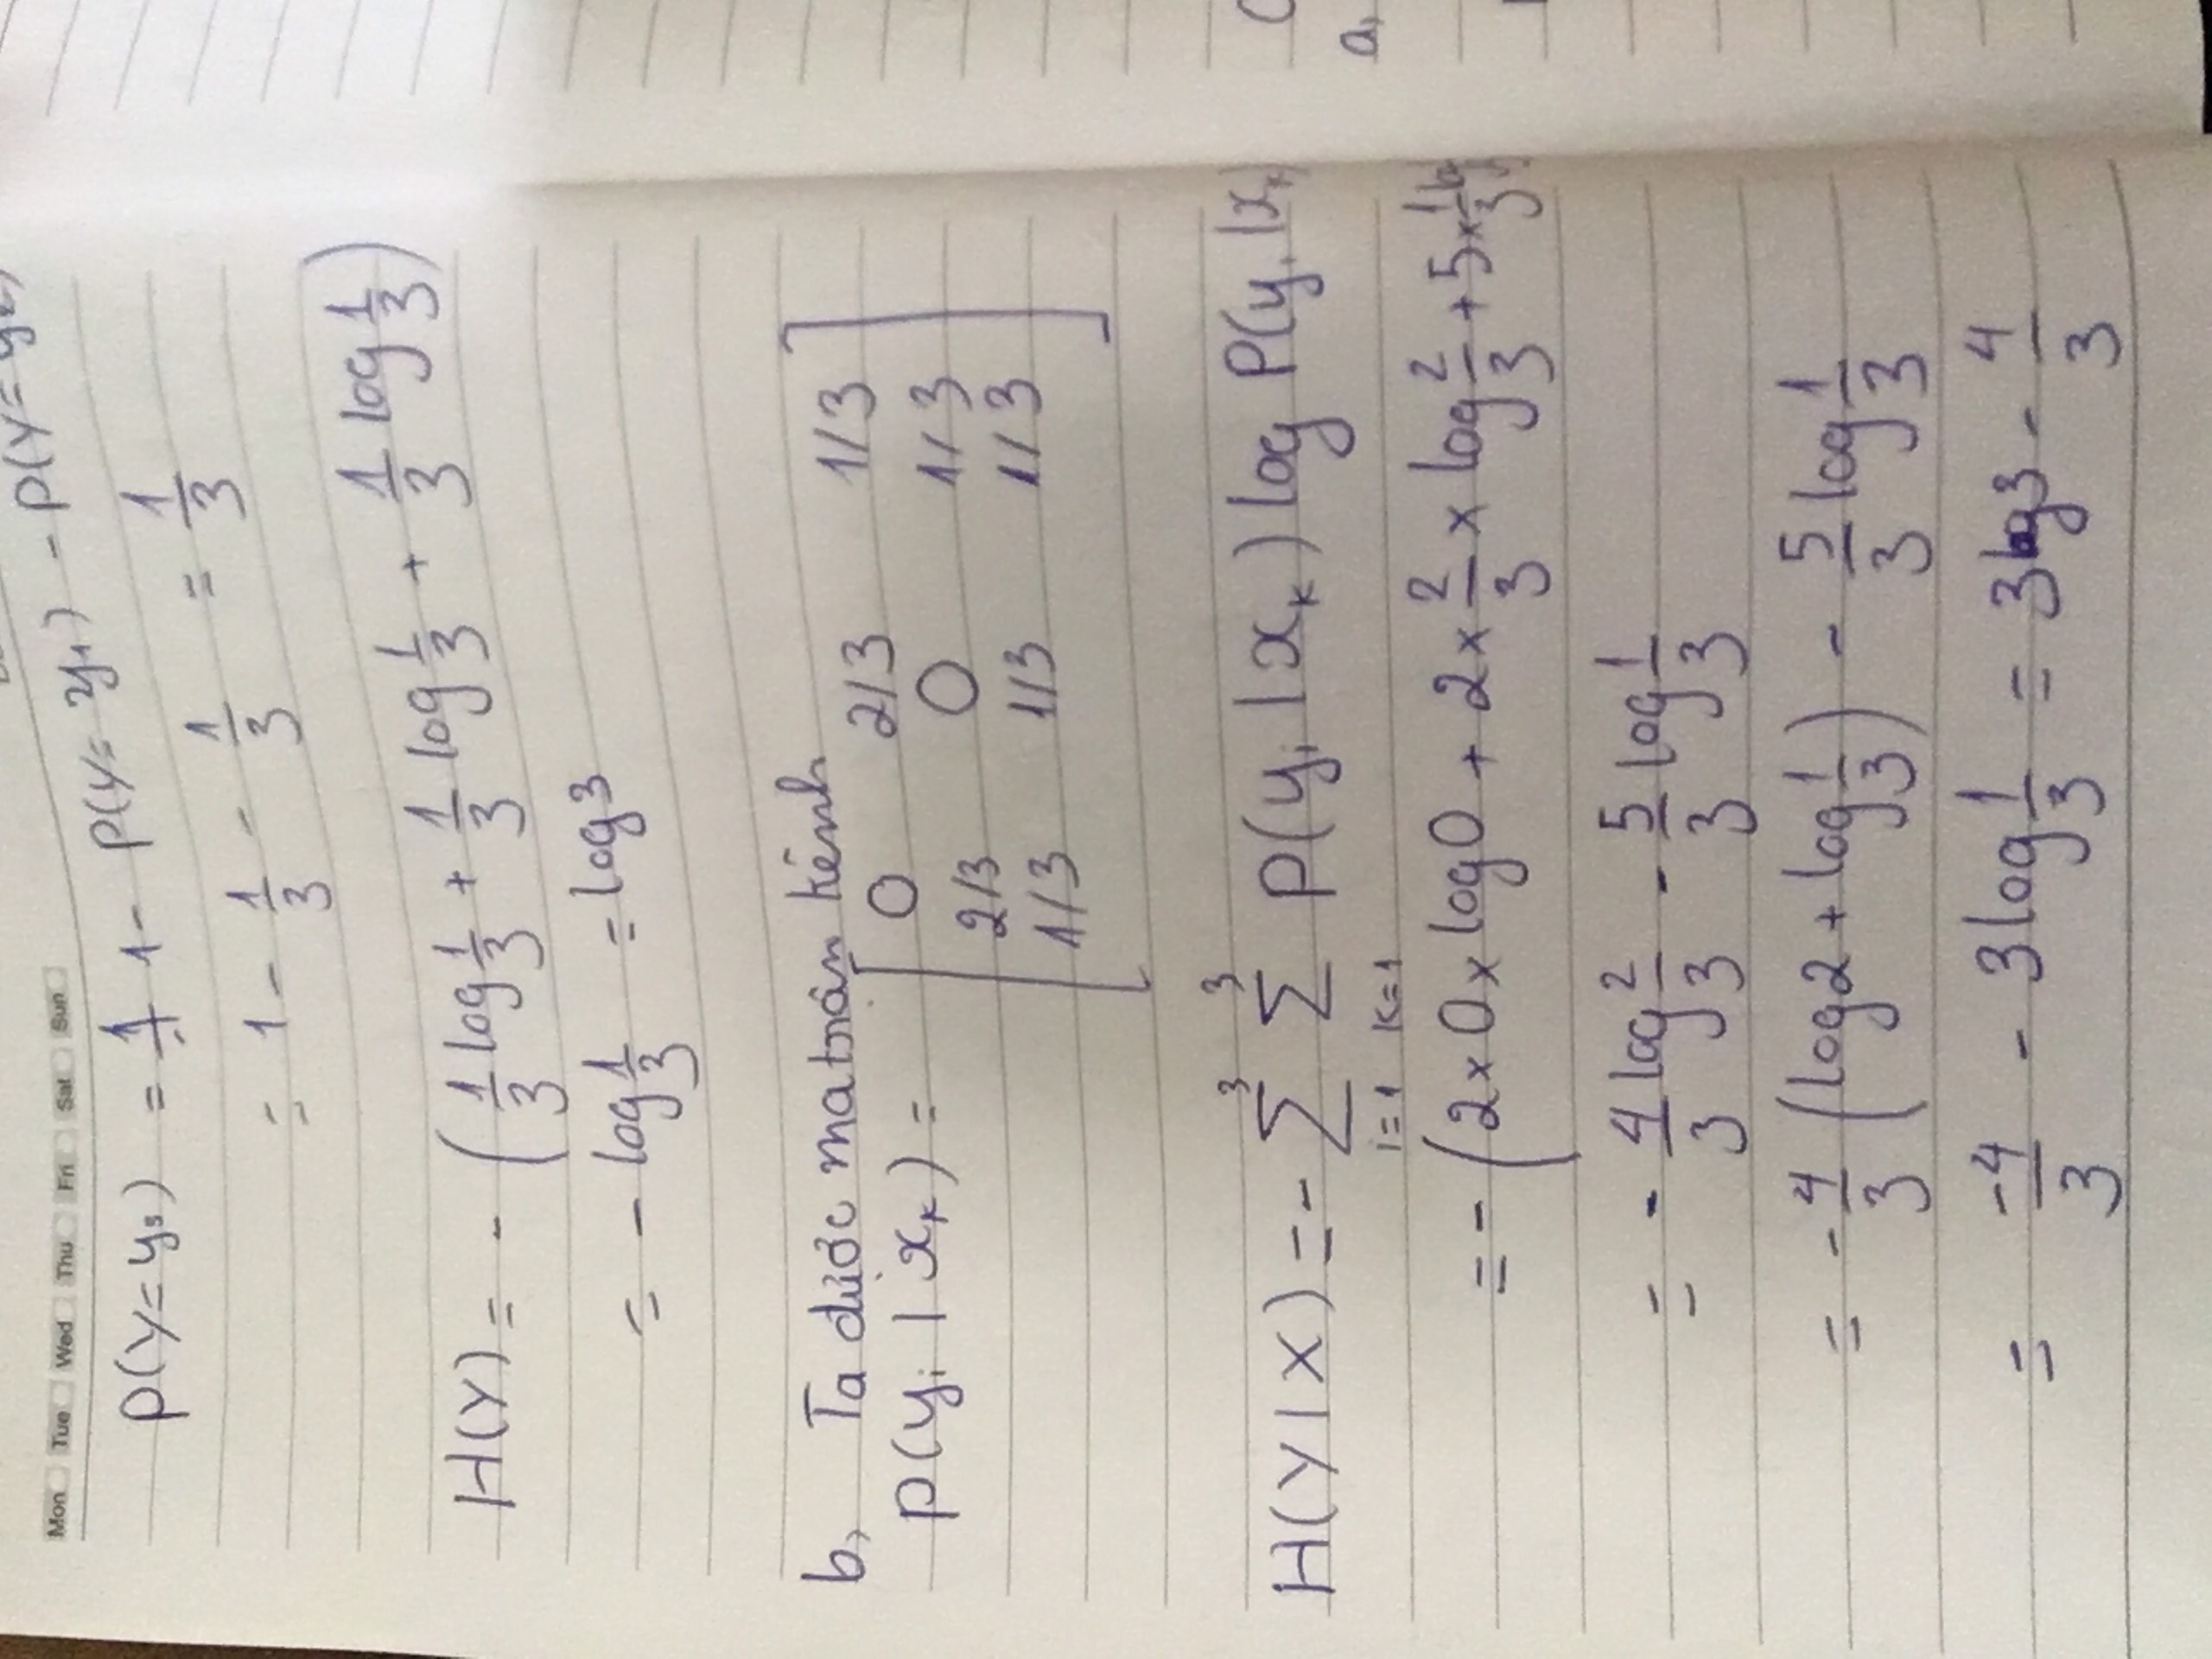 Mon Tue Wed Thu Fri Sat Sun
P(Y=y₃) = 1 - P(Y=y₁) - P(Y=y₂)
= 1 - 1/3 - 1/3 = 1/3
H(Y) = - (1/3 log 1/3 + 1/3 log 1/3 + 1/3 log 1/3)
= - log 1/3 = log 3
b, Ta được ma trân kênh
P(yᵢ | xₖ) = [ 0 2/3 1/3
2/3 0 1/3
1/3 1/3 1/3 ]
H(Y|X) = - ∑³ᵢ₌₁ ∑³ₖ₌₁ P(yᵢ | xₖ) log P(yᵢ | xₖ)
= - (2 × 0 × log 0 + 2 × 2/3 × log 2/3 + 5 × 1/3 log
= - 4/3 log 2/3 - 5/3 log 1/3
= - 4/3 (log 2 + log 1/3) - 5/3 log 1/3
= -4/3 - 3 log 1/3 = 3 log 3 - 4/3
a,